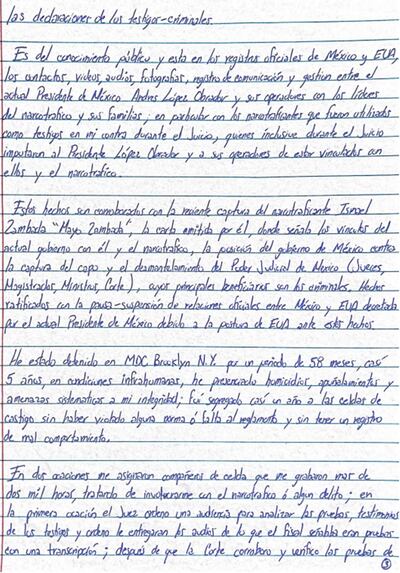 las declaraciones de los testigos-criminales.
Es del conocimiento público y esta en los registros oficiales de México y EUA,
los contactos, videos, audios, fotografias, registro de comunicación y gestion entre el
actual Presidente de México Andres López Obrador y sus operadores con los líderes
del narcotrafico y sus familias, en particular con los narcotraficantes que fueron utilizados
como testigos en mi contra durante el Juicio, quienes inclusive durante el Juicio
imputaron al Presidente López Obrador y a sus operadores de estar vinculados con
ellos y el narcotrafico.
Estos hechos son corroborados con la reciente captura del narcotraficante Ismael
Zambada "Mayo Zambada", la carta emitida por él, donde señala los vinculos del
actual gobierno con él y el narcotrafico, la posición del gobierno de México contra
la captura del capo y el desmantelamiento del Poder Judicial de Mexico (Jueces,
Magistrados, Ministros, Corte), cuyos principales beneficiarios son los criminales. Hechos
ratificados con la pausa-suspensión de relaciones oficiales entre México y EUA decretada
por el actual Presidente de México debido a la postura de EUA ante estos hechos.
He estado detenido en MDC Brooklyn N.Y. por un periodo de 58 meses, casí
5 años, en condiciones infrahumanas, he presenciado homicidios, apuñalamientos y
amenazas sistematicas a mi integridad; fuí segregado casí un año a las celdas de
castigo sin haber violado alguna norma ó falta al reglamento y sin tener un registro
de mal comportamiento.
En dos ocaciones me asignaron compañeros de celda que me grabaron mas de
dos mil horas, tratando de involucrarme con el narcotrafico ó algun delito; en
la primera ocación el Juez ordeno una audiencia para analizar las pruebas, testimonios
de los testigos y ordeno le entregaran los audios de lo que el fiscal señalaba eran pruebas
con una transcripción; después de que la Corte corroboro y verifico las pruebas de
3